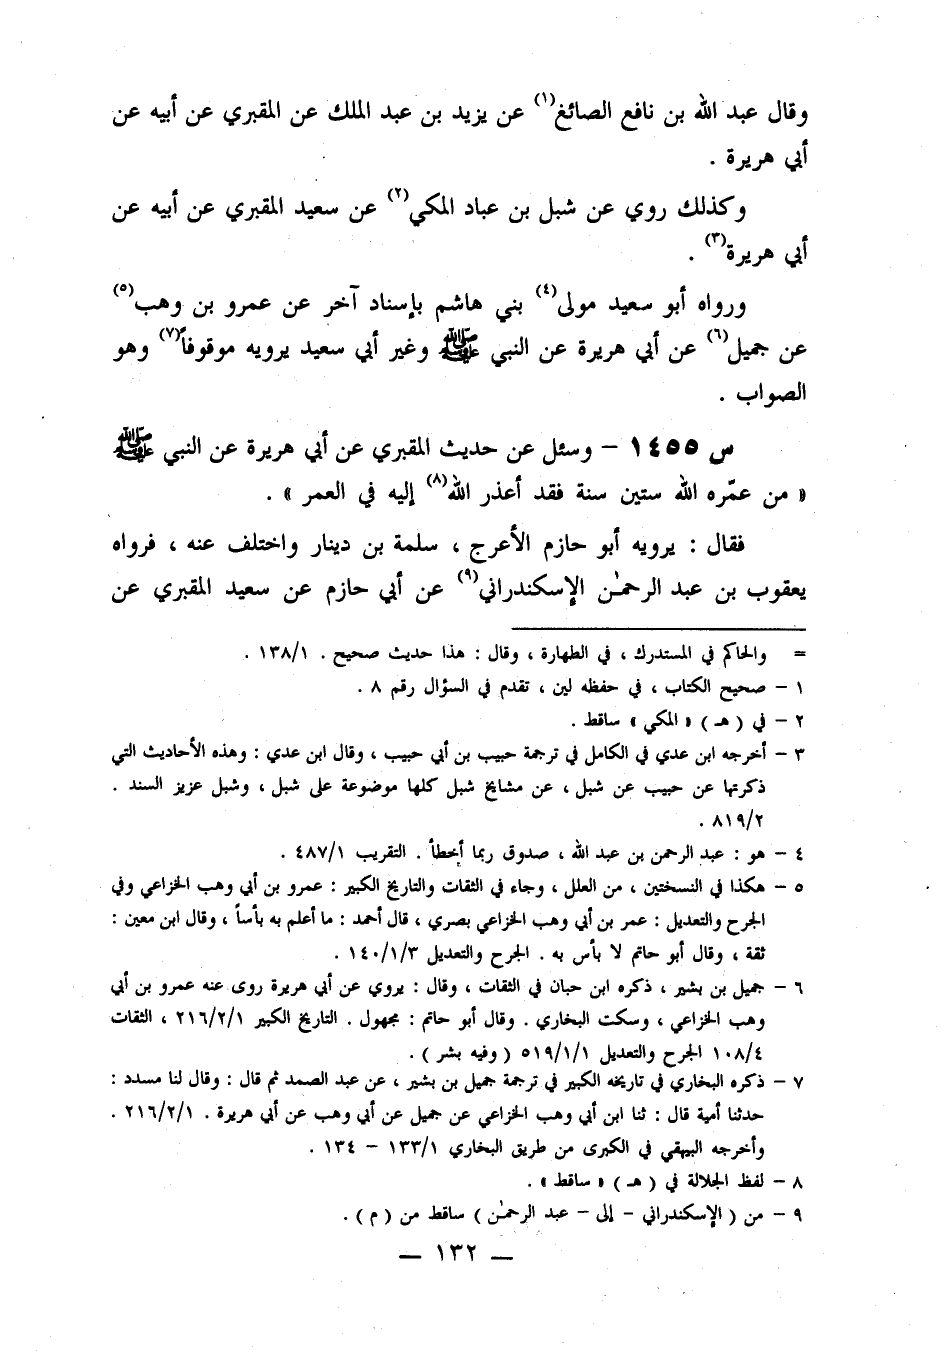 وقال عبد الله بن نافع الصائغ(١) عن يزيد بن عبد الملك عن المقبري عن أبيه عن
أبي هريرة .
وكذلك روي عن شبل بن عباد المكي(٢) عن سعيد المقبري عن أبيه عن
أبي هريرة(٣) .
ورواه أبو سعيد مولى(٤) بني هاشم بإسناد آخر عن عمرو بن وهب(٥)
عن جميل(٦) عن أبي هريرة عن النبي ﷺ وغير أبي سعيد يرويه موقوفاً(٧) وهو
الصواب .
س ١٤٥٥ – وسئل عن حديث المقبري عن أبي هريرة عن النبي ﷺ
« من عمّره الله ستين سنة فقد أعذر الله(٨) إليه في العمر » .
فقال : يرويه أبو حازم الأعرج ، سلمة بن دينار واختلف عنه ، فرواه
يعقوب بن عبد الرحمٰن الإسكندراني(٩) عن أبي حازم عن سعيد المقبري عن
= والحاكم في المستدرك ، في الطهارة ، وقال : هذا حديث صحيح . ١٣٨/١ .
١ – صحيح الكتاب ، في حفظه لين ، تقدم في السؤال رقم ٨ .
٢ – في ( هـ ) « المكي » ساقط .
٣ – أخرجه ابن عدي في الكامل في ترجمة حبيب بن أبي حبيب ، وقال ابن عدي : وهذه الأحاديث التي
ذكرتها عن حبيب عن شبل ، عن مشايخ شبل كلها موضوعة على شبل ، وشبل عزيز السند .
٨١٩/٢ .
٤ – هو : عبد الرحمن بن عبد الله ، صدوق ربما أخطأ . التقريب ٤٨٧/١ .
٥ – هكذا في النسختين ، من العلل ، وجاء في الثقات والتاريخ الكبير : عمرو بن أبي وهب الخزاعي وفي
الجرح والتعديل : عمر بن أبي وهب الخزاعي بصري ، قال أحمد : ما أعلم به بأساً ، وقال ابن معين :
ثقة ، وقال أبو حاتم لا بأس به . الجرح والتعديل ١٤٠/١/٣ .
٦ – جميل بن بشير ، ذكره ابن حبان في الثقات ، وقال : يروي عن أبي هريرة روى عنه عمرو بن أبي
وهب الخزاعي ، وسكت البخاري . وقال أبو حاتم : مجهول . التاريخ الكبير ٢١٦/٢/١ ، الثقات
١٠٨/٤ الجرح والتعديل ٥١٩/١/١ ( وفيه بشر ) .
٧ – ذكره البخاري في تاريخه الكبير في ترجمة جميل بن بشير ، عن عبد الصمد ثم قال : وقال لنا مسدد :
حدثنا أمية قال : ثنا ابن أبي وهب الخزاعي عن جميل عن أبي وهب عن أبي هريرة . ٢١٦/٢/١ .
وأخرجه البيهقي في الكبرى من طريق البخاري ١٣٣/١ – ١٣٤ .
٨ – لفظ الجلالة في ( هـ ) « ساقط » .
٩ – من ( الإسكندراني – إلى – عبد الرحمٰن ) ساقط من ( م ) .
— ١٣٢ —